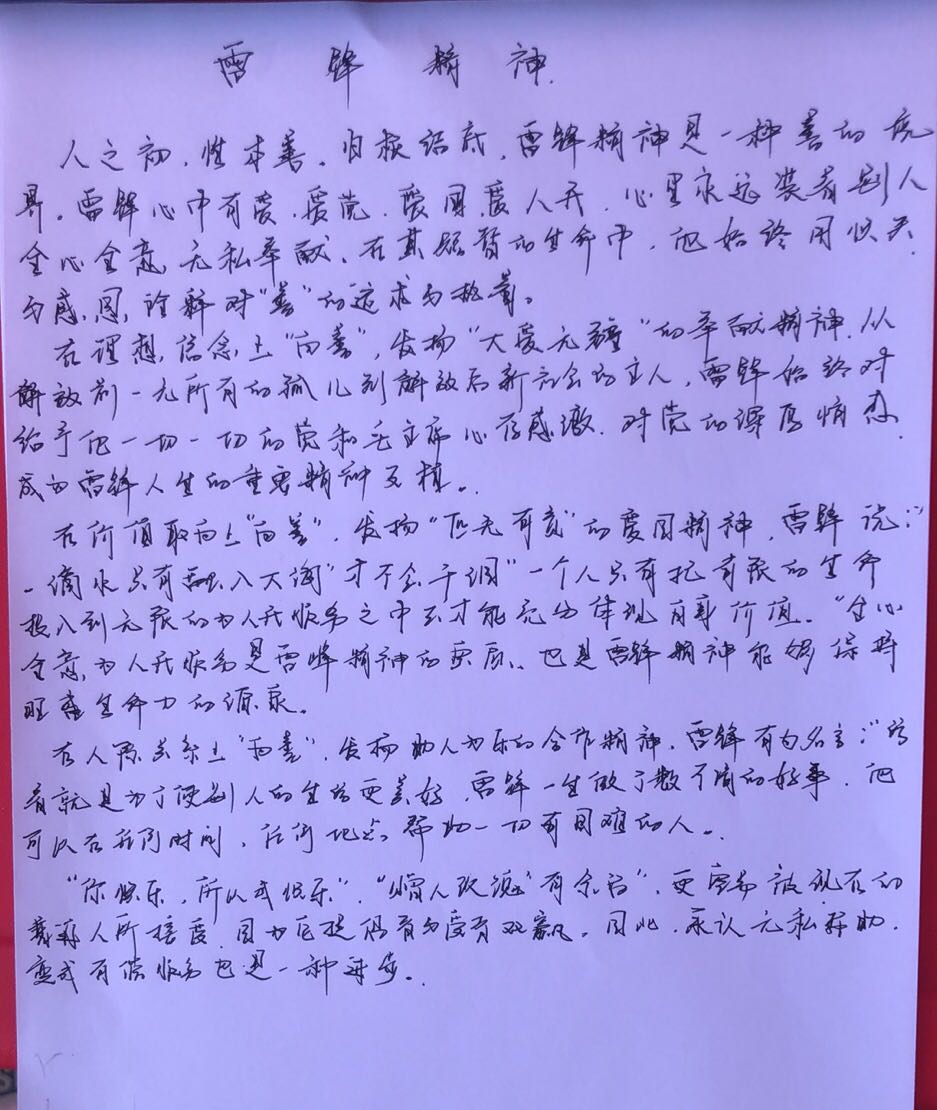 雷锋精神
人之初,性本善。归根结底,雷锋精神是一种善的境
界。雷锋心中有爱,爱党,爱国,爱人民,心里永远装着别人
全心全意,无私奉献,在其短暂的生命中,他始终用快乐
与感恩,诠释对“善”的追求与执着。
在理想信念上“向善”,发扬“大爱无疆”的奉献精神,从
解放前一无所有的孤儿到解放后新社会的主人,雷锋始终对
给予他一切一切的党和毛主席心存感激,对党的深厚情感,
成为雷锋人生的重要精神支柱。
在价值取向上“向善”,发扬“匹夫有责”的爱国精神,雷锋说:“
一滴水只有融入大海“才不会干涸”一个人只有把有限的生命
投入到无限的为人民服务之中去才能充分体现自身价值。“全心
全意为人民服务是雷锋精神的实质,也是雷锋精神能够保持
旺盛生命力的源泉。
在人际关系上“向善”,发扬助人为乐的合作精神,雷锋有句名言:“活
着就是为了使别人的生活更美好,雷锋一生做了数不清的好事,他
可以在任何时间,任何地点,帮助一切有困难的人。
“你快乐,所以我快乐”,“赠人玫瑰”有余香”,更容易被现在的
人所接受,因为它提倡 与受者双赢。因此,承认无私帮助,
变成有偿服务也是一种进步。